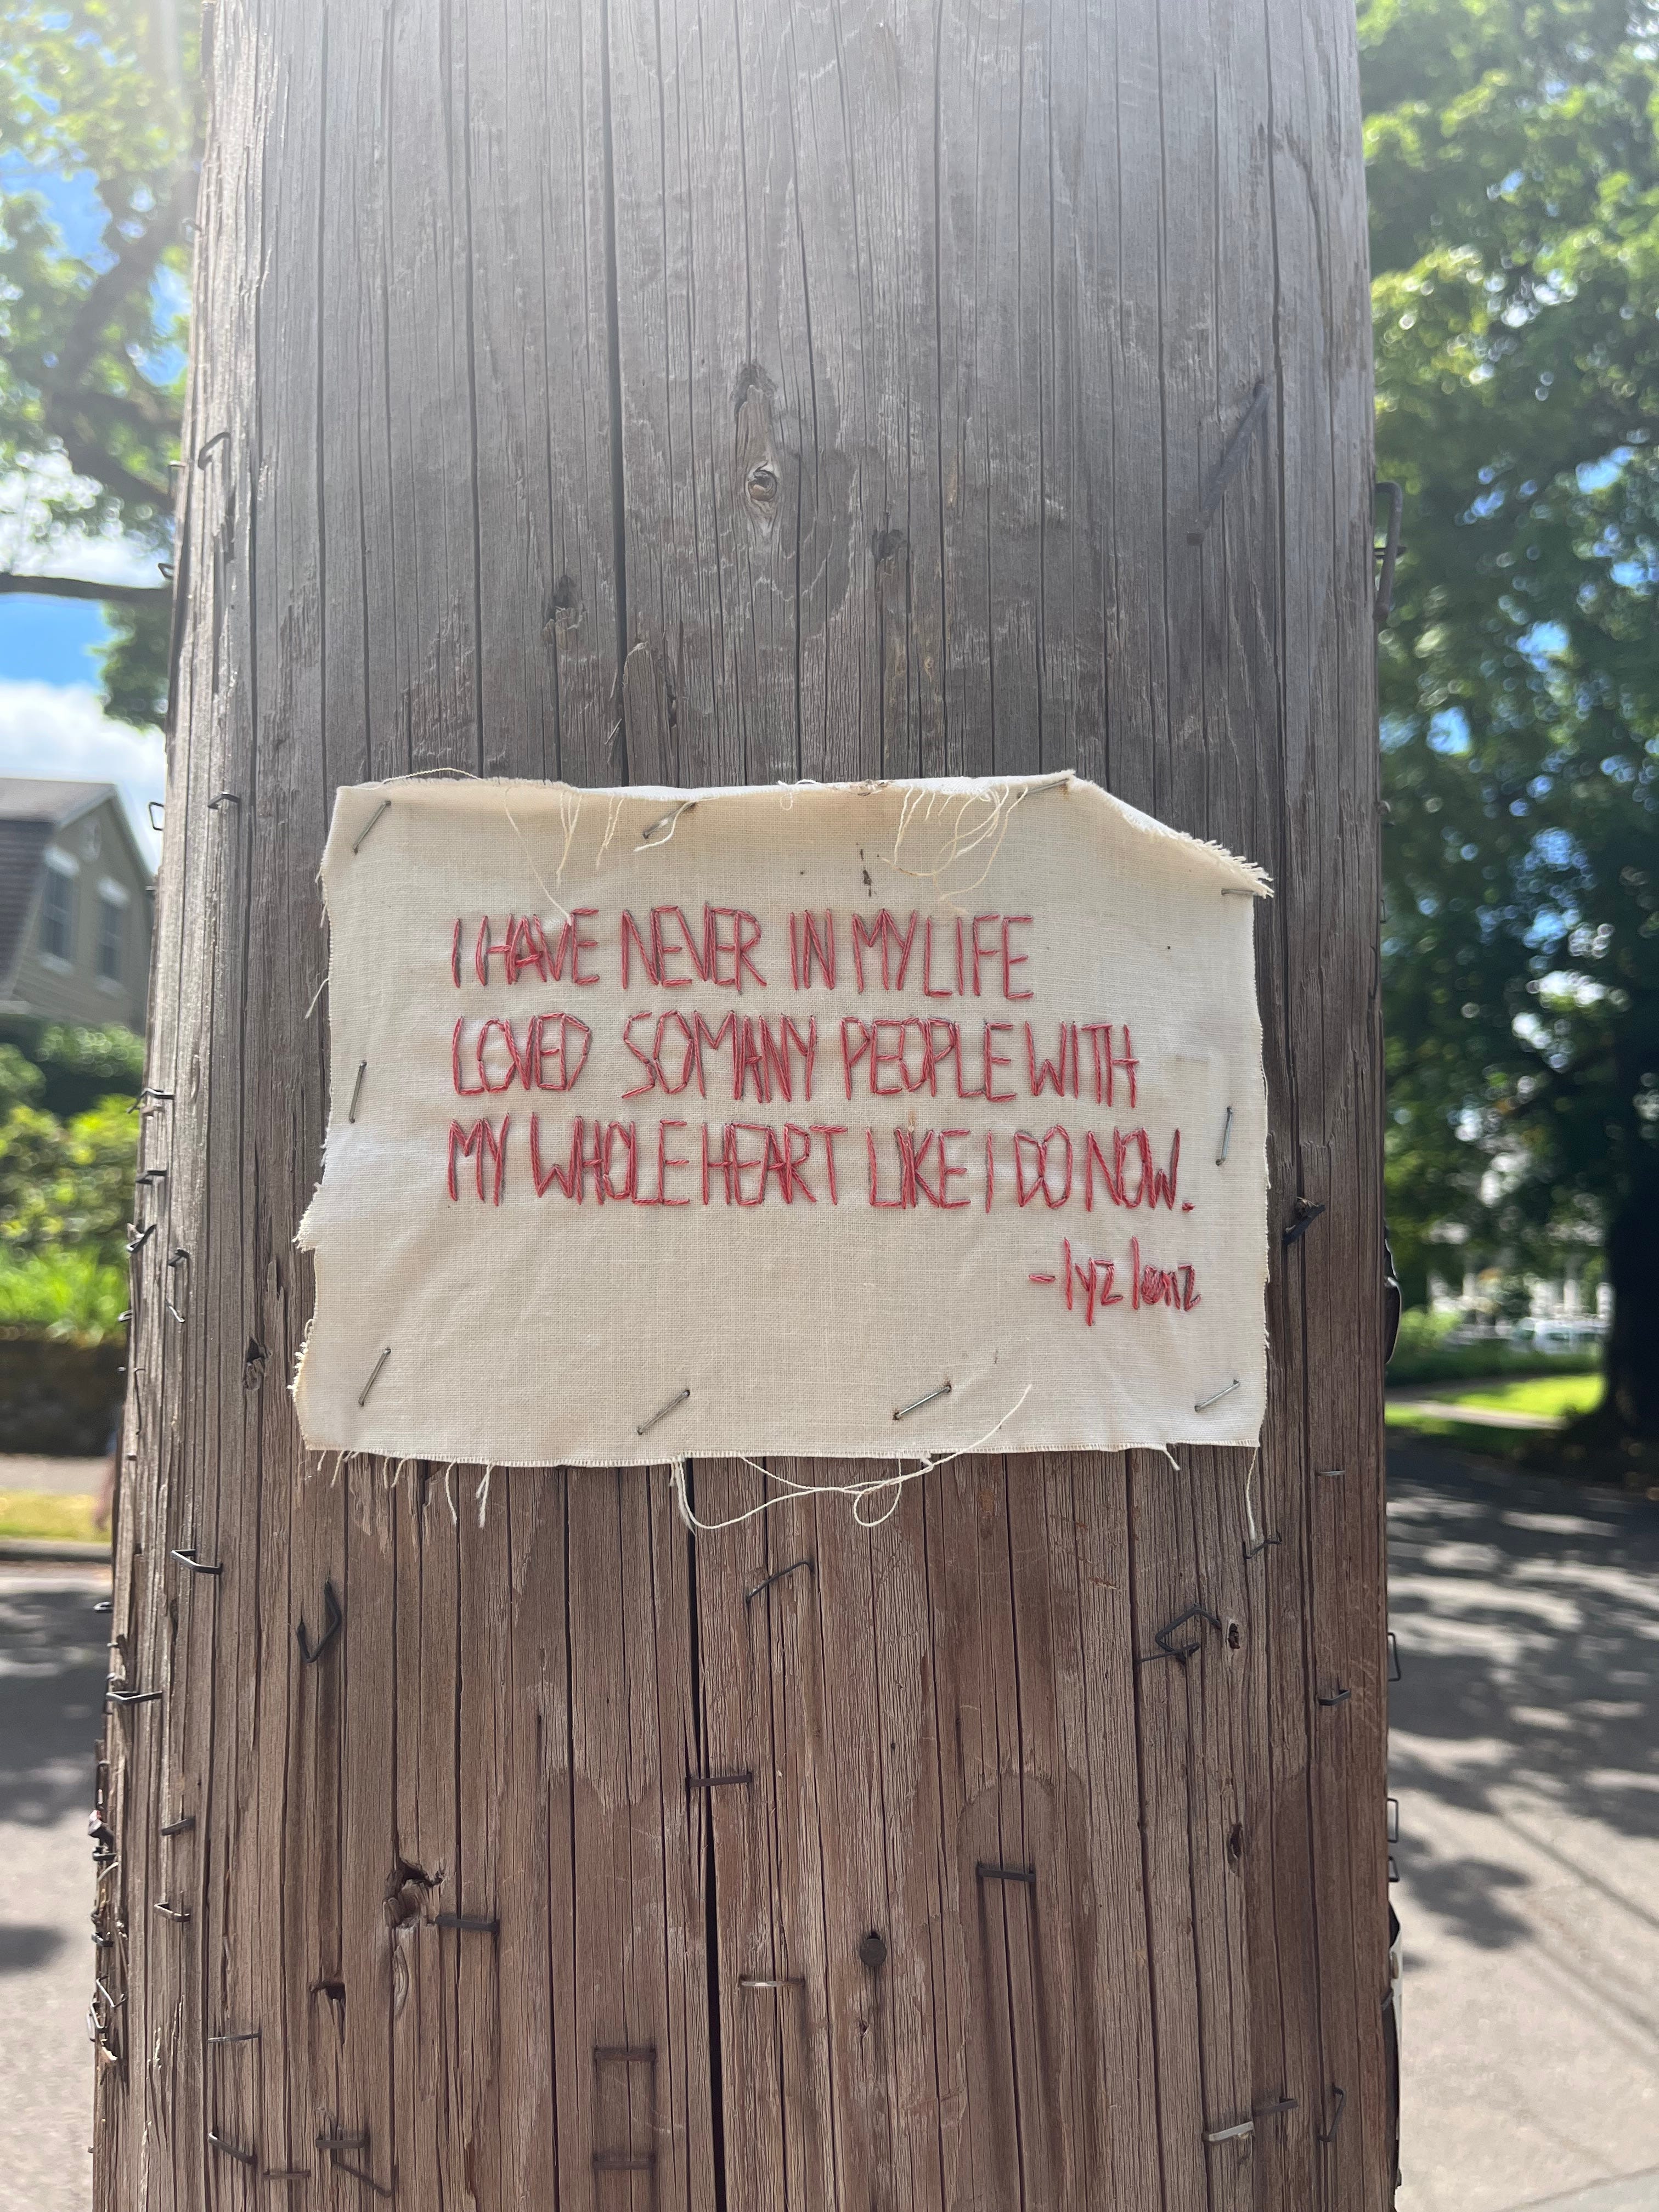 I HAVE NEVER IN MY LIFE
LOVED SO MANY PEOPLE WITH
MY WHOLE HEART LIKE I DO NOW.
-lyz lenz